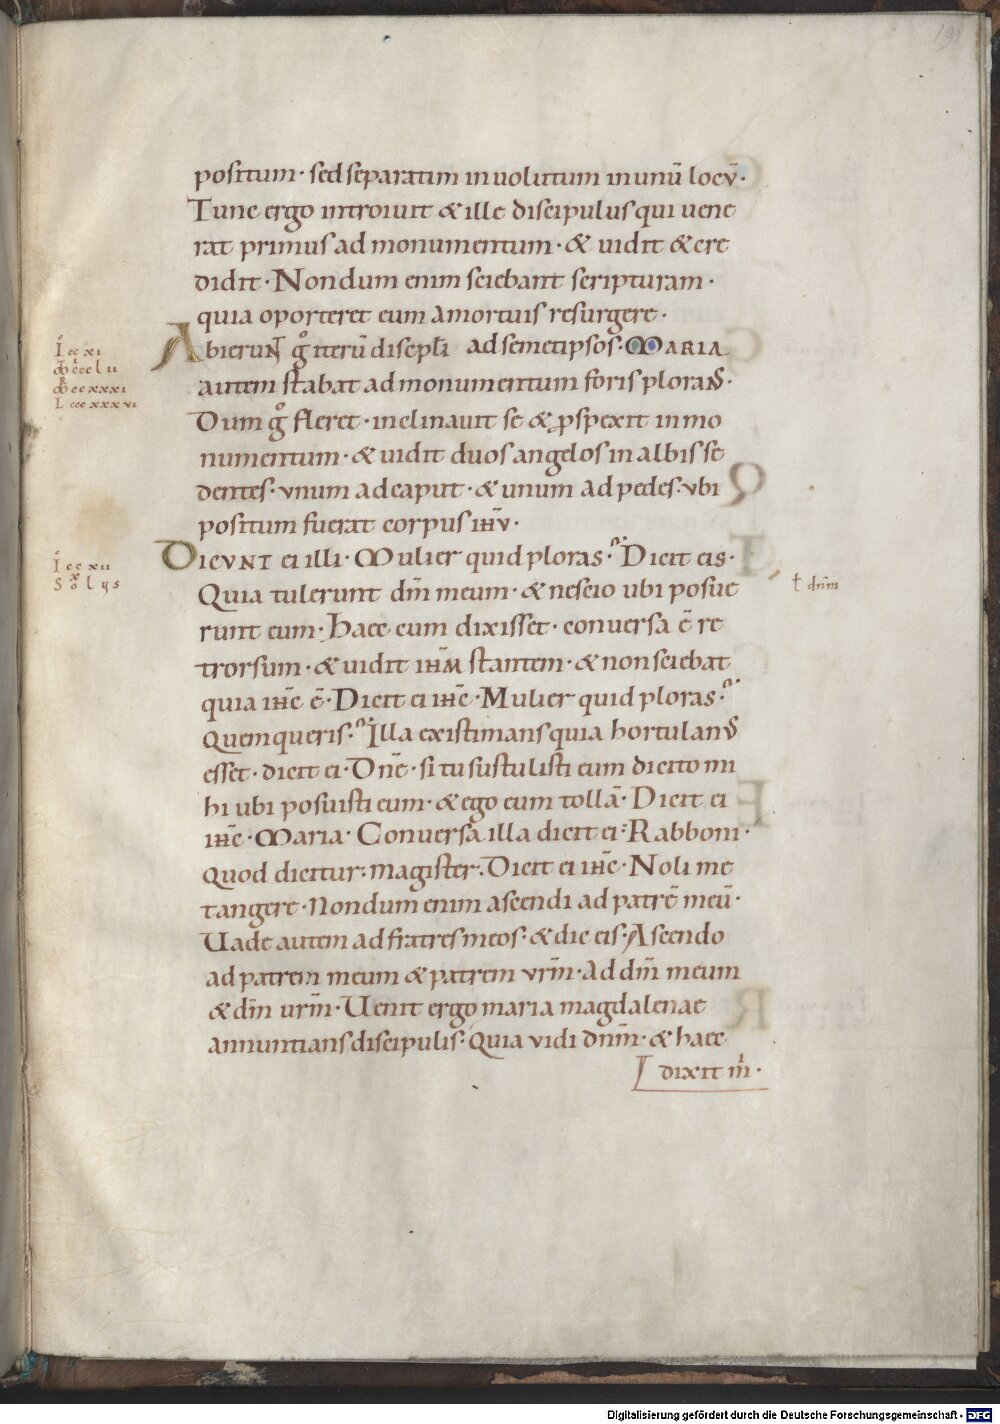 191
positum· sed separatim inuolutum inunū locū·
Tunc ergo introiuit & ille discipulus qui uene
rat primus ad monumentum· & uidit & cre
didit· Nondum enim sciebant scripturam·
quia oporteret eum amortuis resurgere·
Abierunt gͦ iterū discipl̄i ad semetipsos· MARIA
autem stabat ad monumentum foris plorans·
Dum gͦ fleret· inclinauit se & ꝓspexit in mo
numentum· & uidit duos angelos in albis se
dentes· vnum ad caput· & unum ad pedes· vbi
positum fuerat corpus ihū·
DICVNT ei illi· Mulier quid ploras· Dicit eis·
Quia tulerunt dn̄m meum· & nescio ubi posue
runt eum· Haec cum dixisset· conuersa ē re
trorsum· & uidit ihm̄ stantem· & non sciebat
quia ihc̄ ē· Dicit ei ihc̄· Mulier quid ploras·
Quem queris· Illa existimans quia hortulanus
esset· dicit ei· Dn̄e· si tu sustulisti eum dicito mi
hi ubi posuisti eum· & ego eum tollā· Dicit ei
ihc̄· Maria· Conuersa illa dicit ei· Rabboni·
Quod dicitur· magister· Dicit ei ihc̄· Noli me
tangere· Nondum enim ascendi ad patrē meū·
Uade autem ad fratres meos· & dic eis· Ascendo
ad patrem meum & patrem vrm̄· Ad dm̄ meum
& dm̄ urm̄· Uenit ergo maria magdalenae
annuntians discipulis· Quia vidi dnm̄· & haec
dixit m̄·
I cc xi
cccl ii
cc xxxi
L ccc xxx vi
I cc xii
ł dnm̄
Digitalisierung gefördert durch die Deutsche Forschungsgemeinschaft - DFG